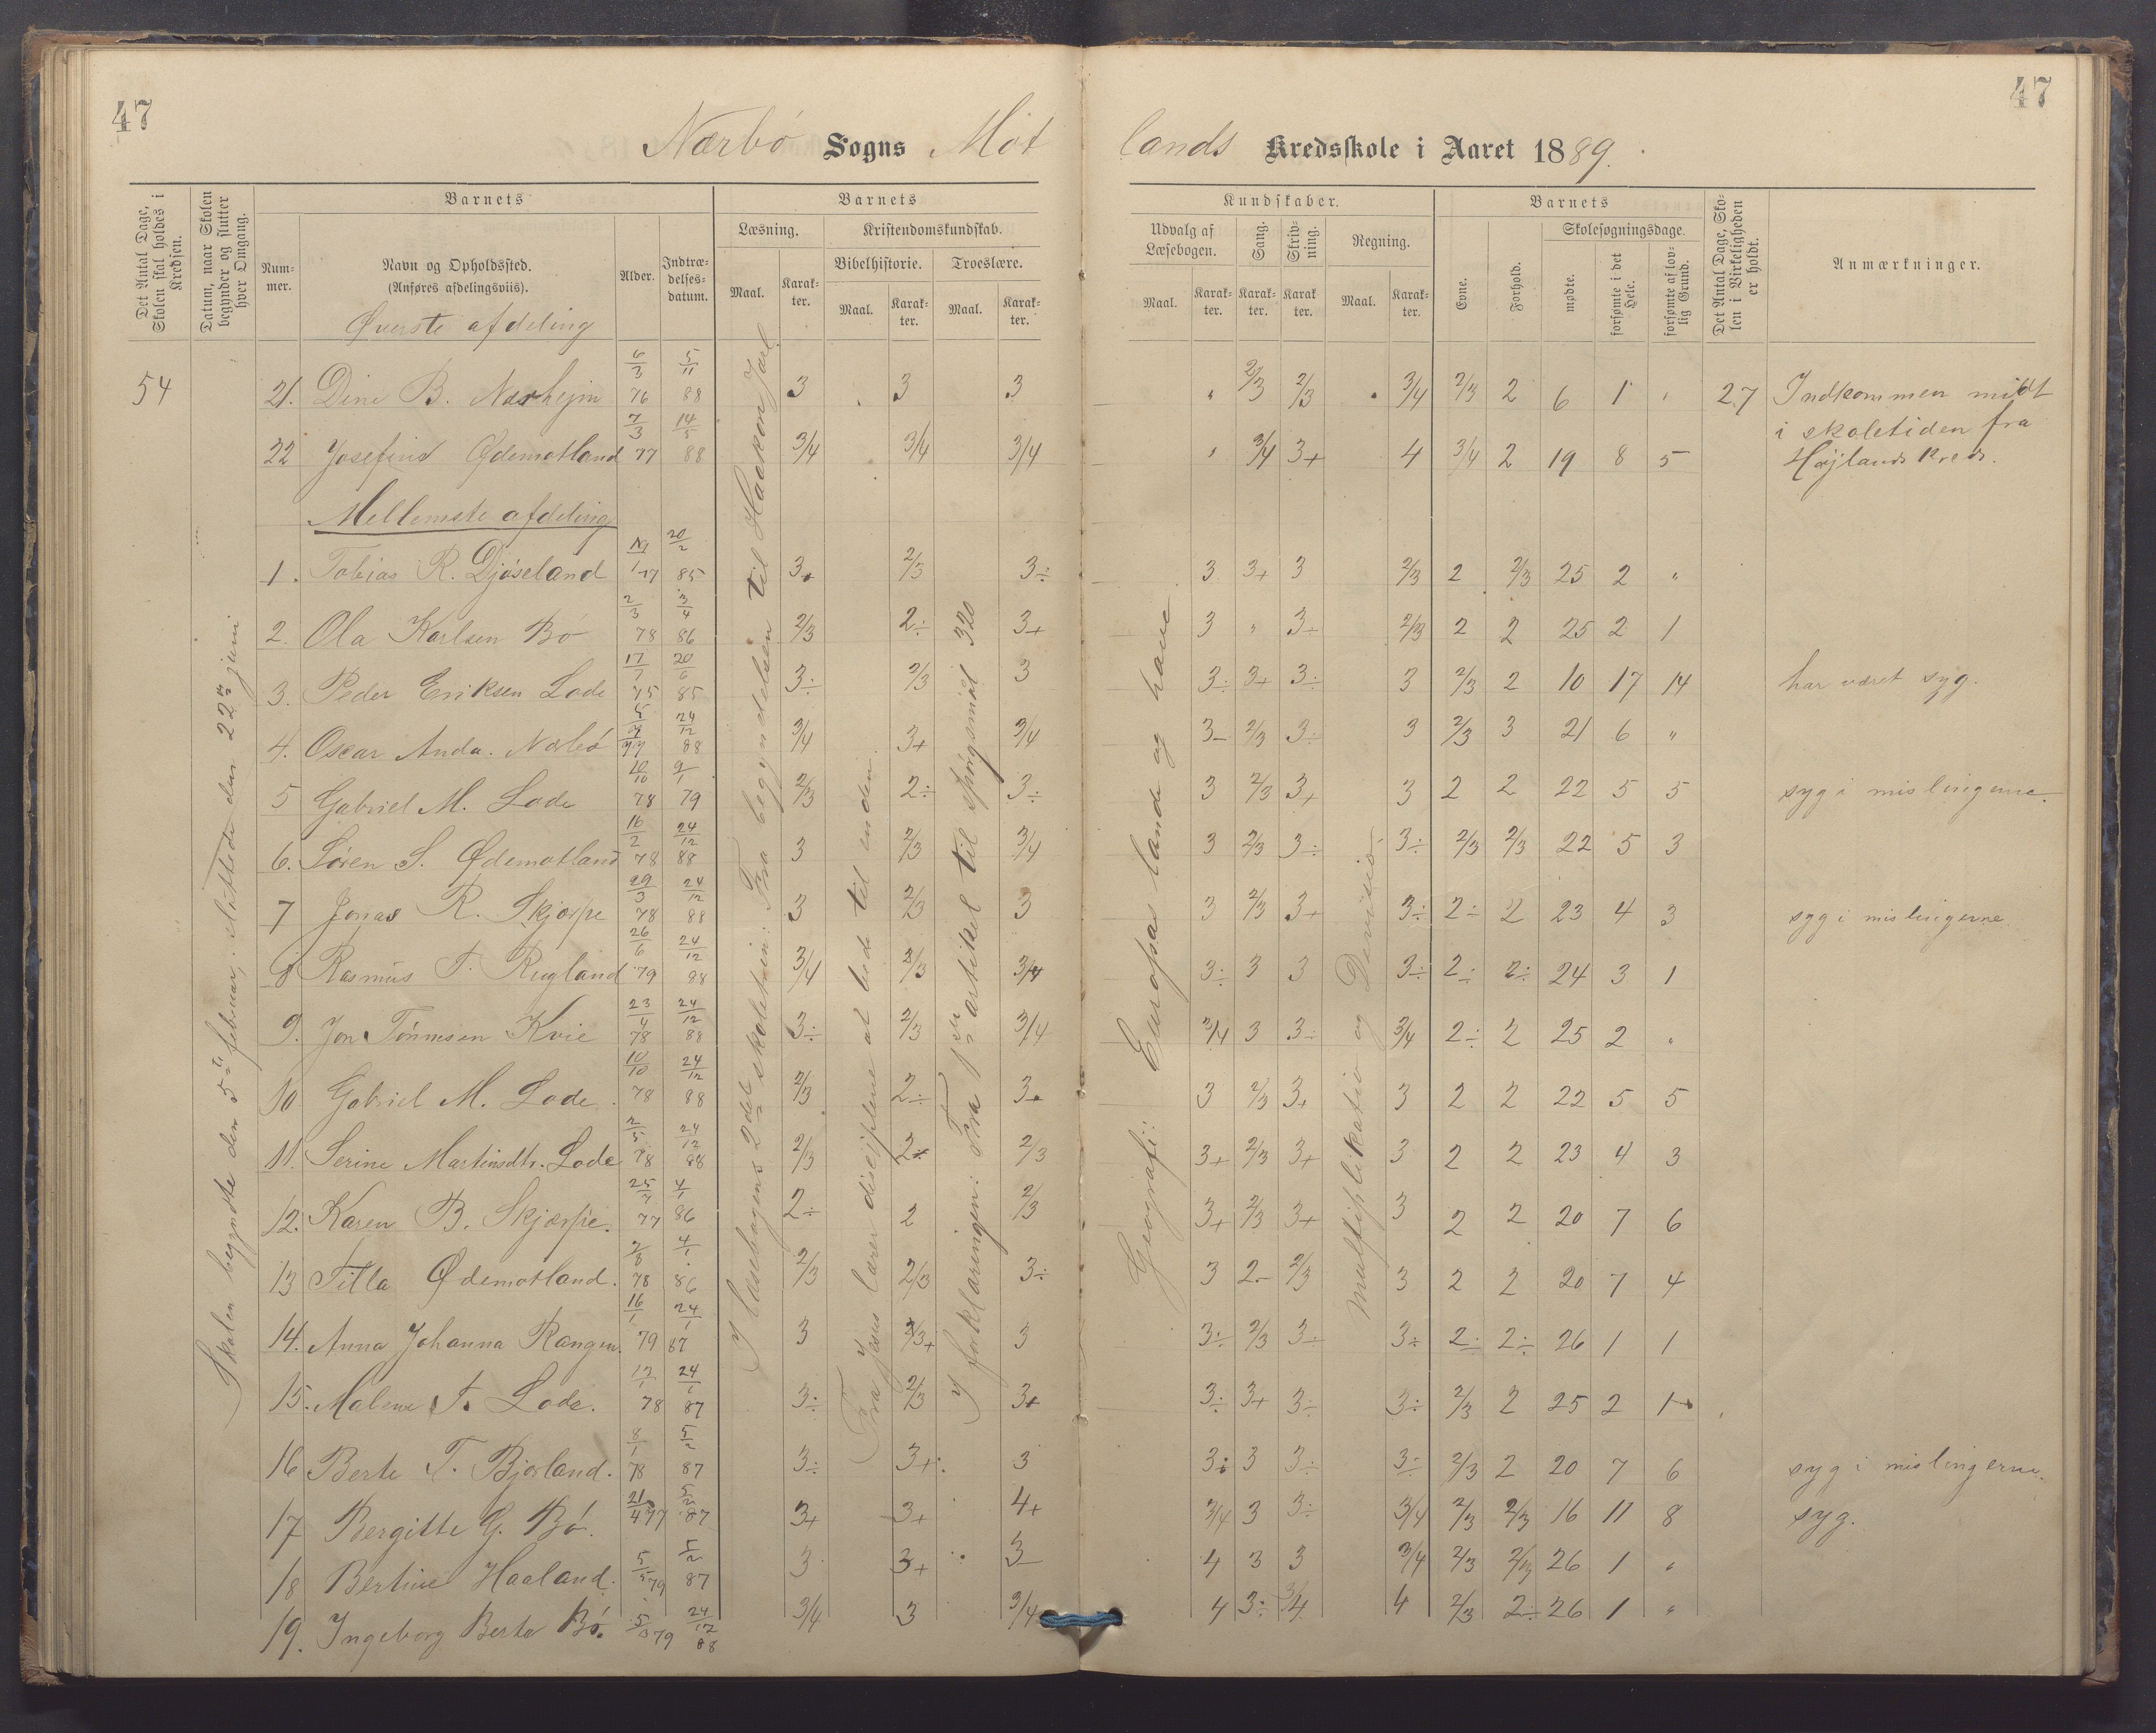 47
47
Nærbö Sogns Mot
lands Kredsskole i Aaret 1889.
Det Antal Dage, Skolen skal holdes i Kredsen.
Datum, naar Skolen begynder og slutter hver Omgang.
Barnets
Num-mer.
Navn og Opholdssted.
(Anføres afdelingsviis).
Alder.
Indtræ-delses-datum.
Barnets
Læsning.
Maal.
Karak-ter.
Kristendomskundskab.
Bibelhistorie.
Maal.
Karak-ter.
Troeslære.
Maal.
Karak-ter.
Kundskaber.
Udvalg af Læsebogen.
Maal.
Karak-ter.
Sang.
Karak-ter.
Skriv-ning.
Karak-ter.
Regning.
Maal.
Karak-ter.
Barnets
Evne.
Forhold.
Skolesøgningsdage.
mødte.
forsømte i det Hele.
forsømte af lov-lig Grund.
Det Antal Dage, Sko-len i Virkeligheden er holdt.
Anmærkninger.
Øverste afdeling
54
Skolen begyndte den 5te februar, sluttede den 22de juni
I læsebogens 2det skoletrin: Fra begyndelsen til Haakon Jarl
Fra Jesus lærer disciplene at bede til enden
I forklaringen: Fra 1ste artikel til spörgsmål 320
Geografi: Europas lande og have
multiplikation og Division
21. Dine B. Nærhejm 6/3 76 5/11 88 3 3 3 " 2/3 2/3 " 3/4 2/3 2 6 1 " 27 Indkommen midt
i skoletiden fra
Højlands Kreds.
22 Josefine Ødemotland 7/3 77 14/5 88 3/4 3/4 3/4 " 3/4 3+ 4 3/4 2 19 8 5
Mellemste afdeling
1. Tobias R. Djöseland 77 20/2 85 3+ 2/3 3÷ 3 3+ 3 2/3 2 2/3 25 2 "
2. Ola Karlsen Bö 2/3 78 3/4 86 2/3 2÷ 3+ 3 " 3÷ 2/3 2 2 25 2 1
3. Peder Eriksen Lode 17/7 75 20/6 85 3÷ 2/3 3 3÷ 3+ 3÷ 3 2/3 2 10 17 14 har været syg.
4. Oscar Anda. Nærbö 77 24/12 88 3/4 3+ 3/4 3- 2/3 3÷ 3 2/3 3 21 6 "
5 Gabriel M. Lode 10/10 78 9/1 79 2/3 2÷ 3÷ 3 2/3 3+ 3 2 2 22 5 5 syg i mislingerne.
6. Sören S. Ødemotland 16/2 78 24/12 88 3 2/3 3/4 3 2/3 3÷ 3÷ 2/3 2/3 22 5 3
7 Jonas R. Skjærpe 29/3 78 24/12 88 3 2/3 3 3 2/3 3+ 3÷ 2÷ 2 23 4 3 syg i mislingerne
8 Rasmus T. Rugland 26/6 79 24/12 88 3/4 2/3 3/4 3÷ 3 3 3÷ 2÷ 2÷ 24 3 1
9. Jon Tönnesen Kvie 23/4 78 24/12 88 3÷ 2/3 3/4 3/4 3 3÷ 3/4 2÷ 2 25 2 "
10 Gabriel M. Lode 10/10 78 24/12 88 2/3 2÷ 3+ 3 2/3 3+ 3 2 2 22 5 5
11. Serine Martinsdtr. Lode 2/5 78 24/12 88 2/3 2÷ 2/3 3+ 2/3 3+ 3 2 2 23 4 3
12. Karen B. Skjærpe. 77 4/1 86 2÷ 2 2/3 3+ 2/3 3+ 3 2 2 20 7 6
13 Titla Ødemotland. 78 4/1 86 2/3 2/3 3÷ 3 2- 2/3 3 2 2 20 7 4
14. Anna Johanna Rangen. 16/1 79 24/1 87 3 2/3+ 3 3÷ 2/3 3÷ 3÷ 2÷ 2÷ 26 1 1
15. Malene T. Lode. 78 24/1 87 3÷ 2/3 3+ 3÷ 3+ 3÷ 3÷ 2/3 2 25 2 1
16 Berte T. Bjorland. 8/1 78 5/2 87 3÷ 3+ 3 3÷ 3 3÷ 3÷ 2/3 2 20 7 6 syg i mislingerne.
17 Bergitte G. Bö. 21/4 77 5/2 87 3+ 3+ 4+ 3/4 3 3÷ 3/4 2/3 2/3 16 11 8 syg.
18 Bertine Haaland. 5/5 79 5/2 87 3 3+ 3 4 3 3 3/4 2/3 2/3 26 1 "
19. Ingeborg Berte Bö. 79 24/12 88 3/4 3 3/4 4 3÷ 3/4 4 2/3 2÷ 26 1 "